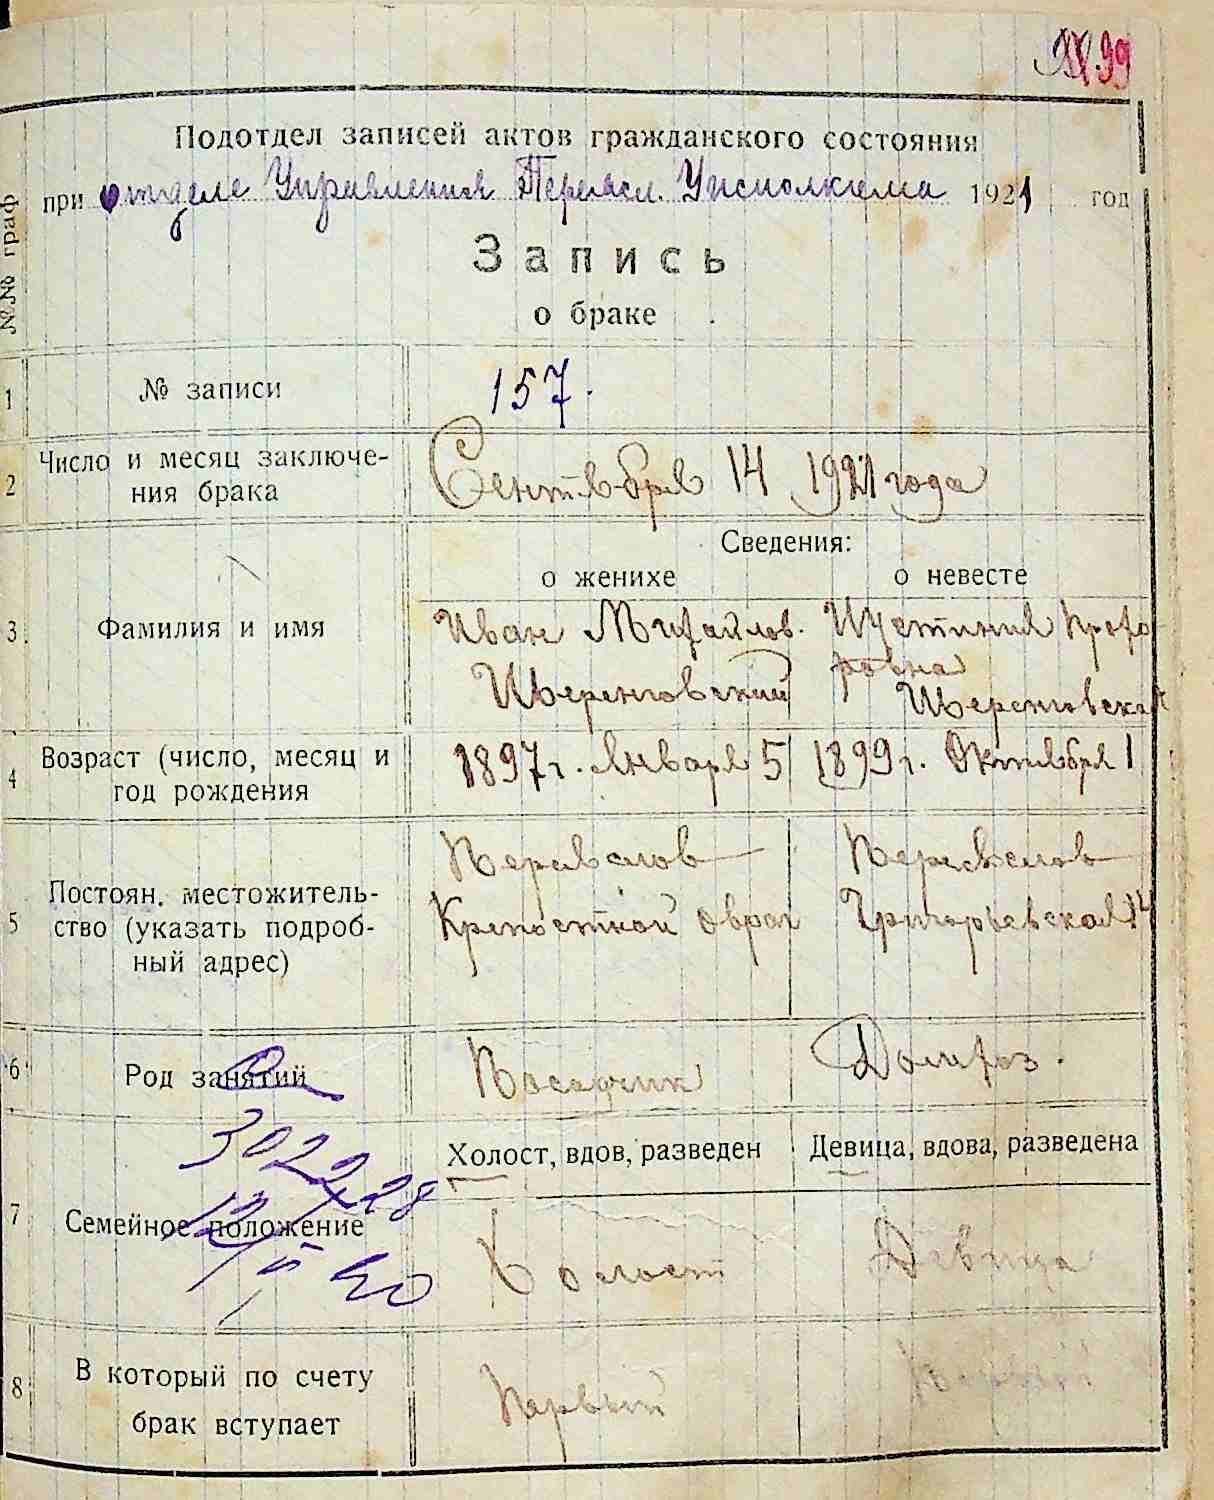 99
Подотдел записей актов гражданского состояния
при отделе Управления Переясл. Уисполкома 1921 год
№№ граф
Запись
о браке
1 № записи 157.
2 Число и месяц заключе-
ния брака Сентября 14 1921 года
Сведения:
о женихе о невесте
3 Фамилия и имя Иван Михайлов. Иустиния Прохо-
ровна
4 Возраст (число, месяц и
год рождения 1897 г. Января 5 1899 г. Октября 1
5 Постоян. местожитель-
ство (указать подроб-
ный адрес)
Переяслов Переяслов
Крепостной Овраг Григорьевская 14
6 Род занятий Домироз.
7 Семейное положение
Холост, вдов, разведен Девица, вдова, разведена
Холост Девица
8 В который по счету
брак вступает Первый Первый